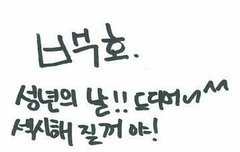 백호.
성년의 날!! 드디어~^^
섹시해 질꺼 야!